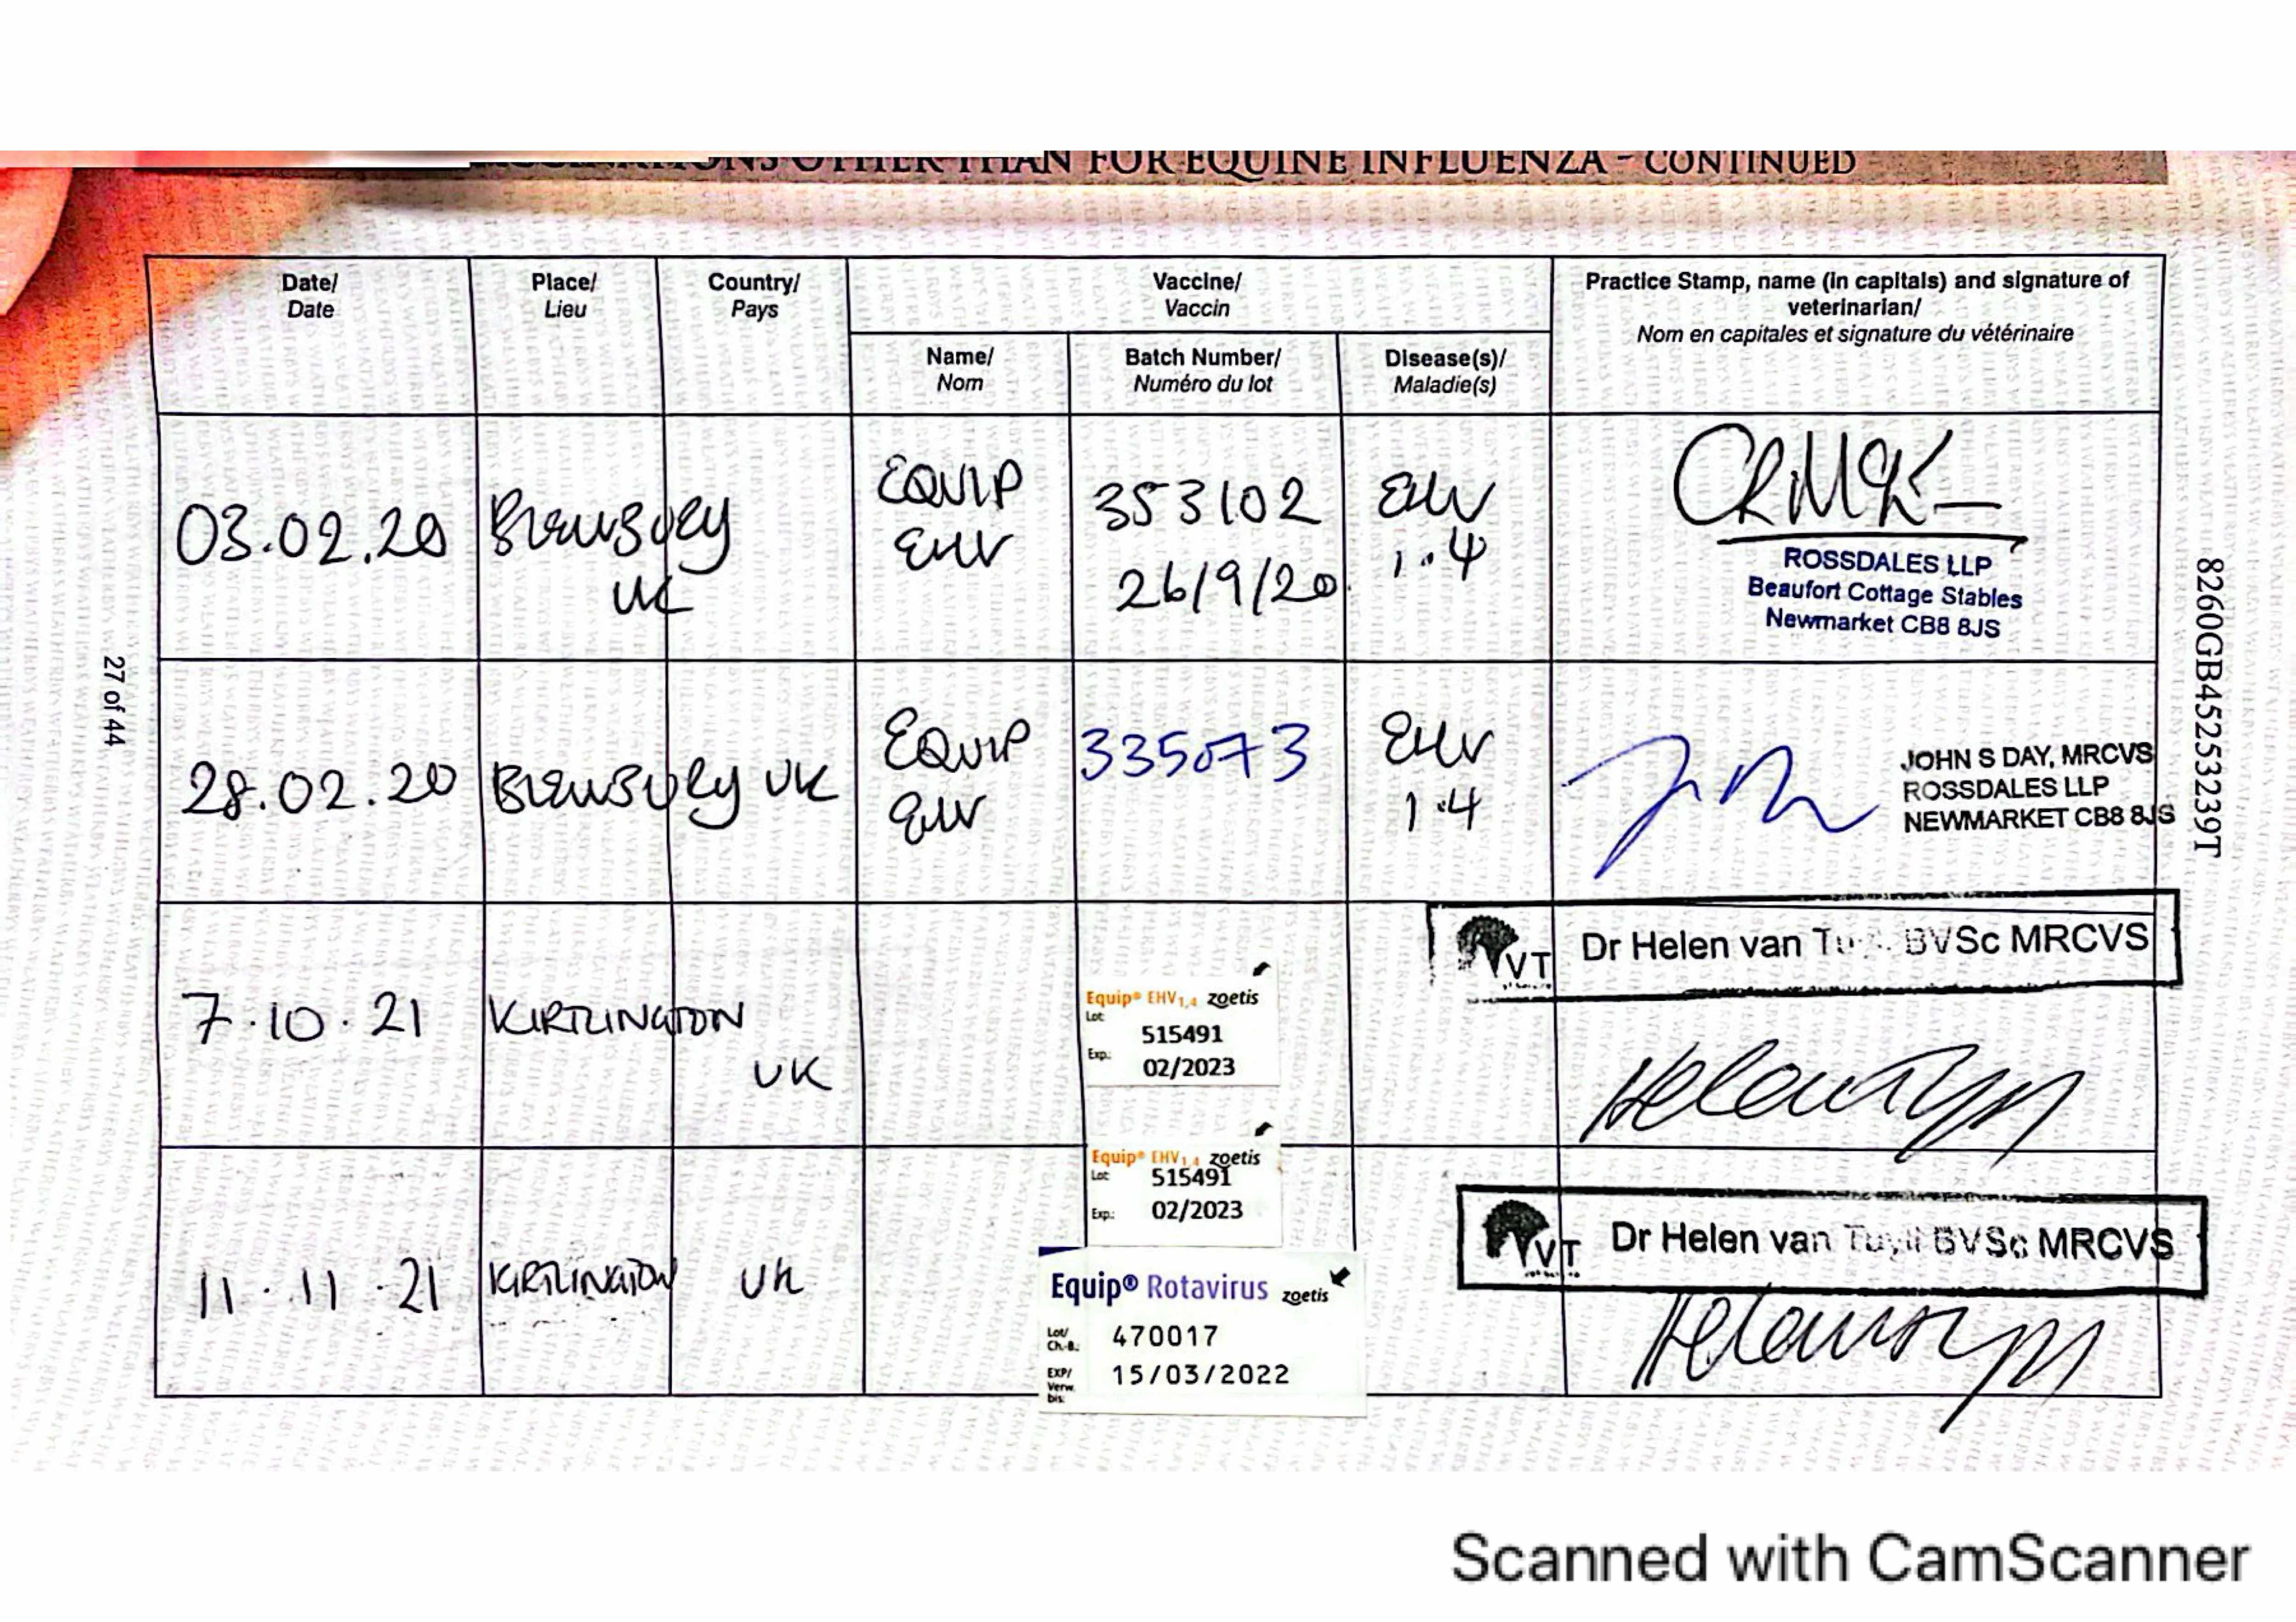 THAN FOR EQUINE INFLUENZA - CONTINUED
Date/
Date
Place/
Lieu
Country/
Pays
Vaccine/
Vaccin
Practice Stamp, name (in capitals) and signature of
veterinarian/
Nom en capitales et signature du vétérinaire
Name/
Nom
Batch Number/
Numéro du lot
Disease(s)/
Maladie(s)
03.02.20
UK
EQUIP
EHV
353102
26/9/20
EHV
1.4
ROSSDALES LLP
Beaufort Cottage Stables
Newmarket CB8 8JS
28.02.20
UK
EQUIP
EHV
335073
EHV
1.4
JOHN S DAY, MRCVS
ROSSDALES LLP
NEWMARKET CB8 8JS
7.10.21
KIRTLINGTON
UK
Equip® EHV1,4 zoetis
Lot:
515491
Exp.:
02/2023
VT
Dr Helen van BVSc MRCVS
11.11.21
KIRTLINGTON
UK
Equip® EHV1,4 zoetis
Lot:
515491
Exp.:
02/2023
Equip® Rotavirus zoetis
Lot/
Ch.-B.:
470017
EXP/
Verw.
bis:
15/03/2022
VT
Dr Helen van Tuyll BVSc MRCVS
27 of 44
8260GB45253239T
Scanned with CamScanner